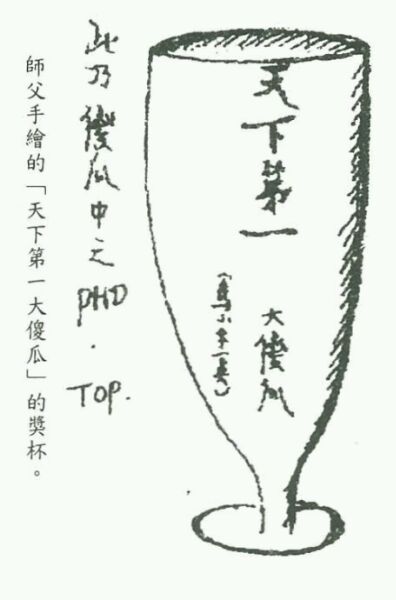 天下第一
大傻瓜
此乃傻瓜中之PHD.TOP.
師父手繪的「天下第一大傻瓜」的獎杯。